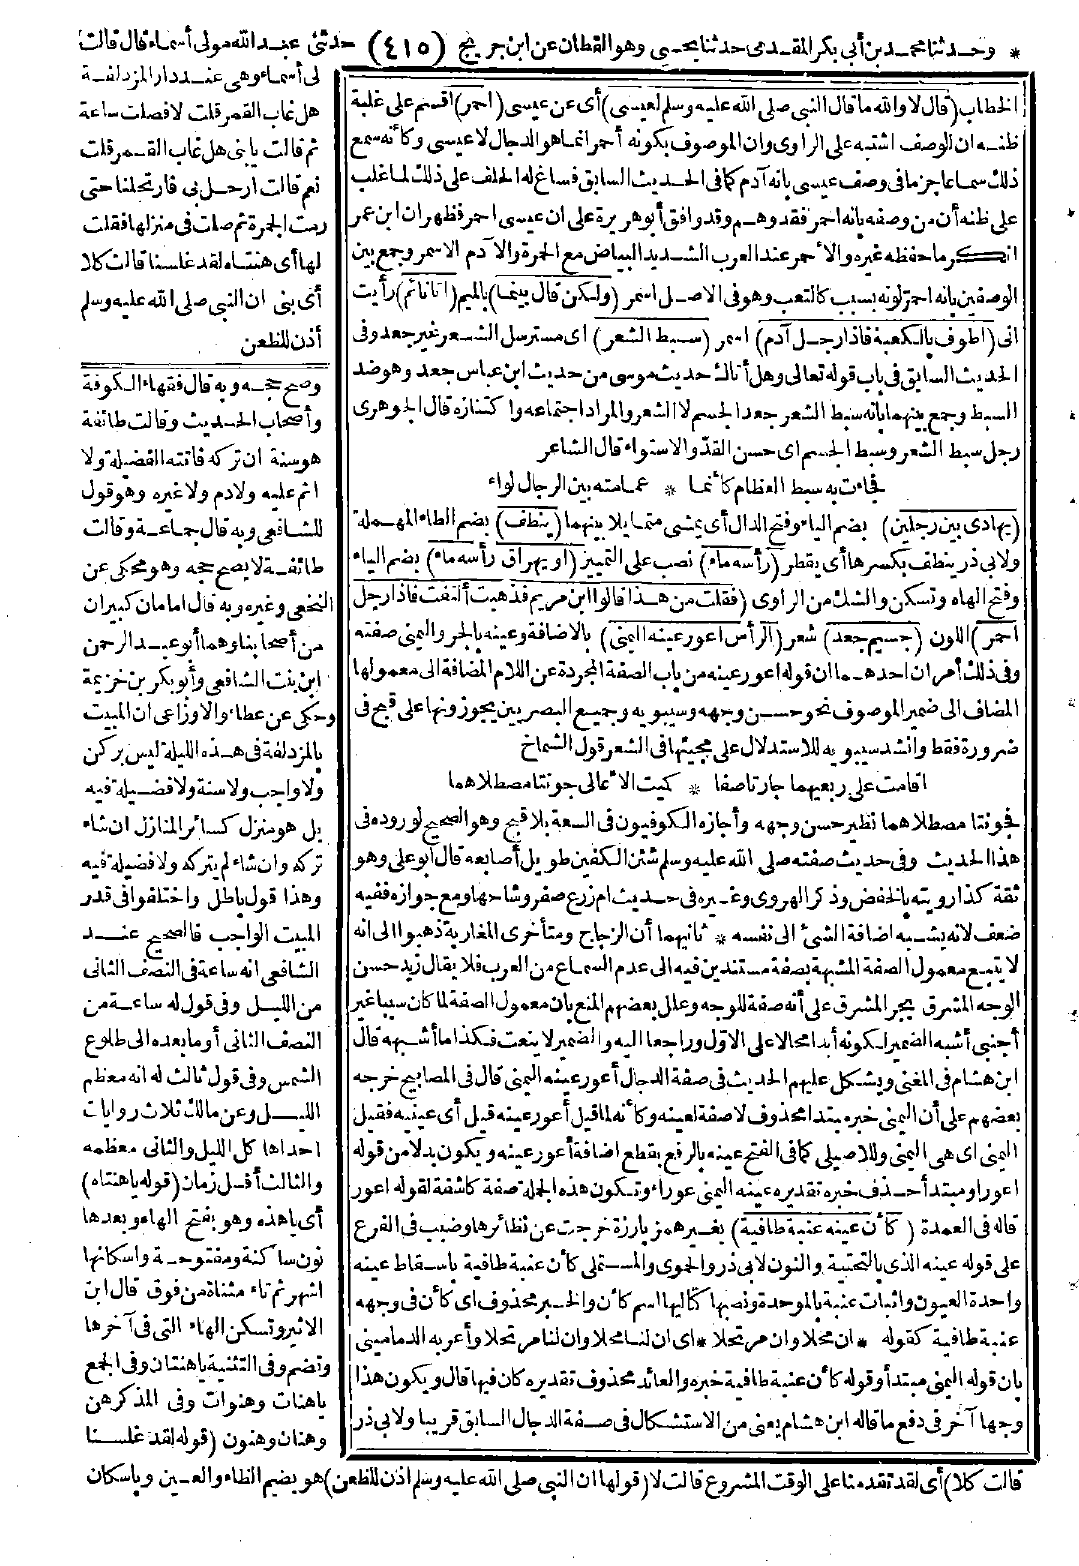 * وحدثنا محمد بن أبي بكر المقدمي حدثنا يحيى وهو القطان عن ابن جريج (٤١٥) حدثني عبد الله مولى أسماء قال قالت
الخطاب (قال لا والله ما قال النبي صلى الله عليه وسلم لعيسى) أى عن عيسى (احمر) اقسم على غلبة
ظنه ان الوصف اشتبه على الراوى وان الموصوف بكونه أحمر انما هو الدجال لا عيسى وكأنه سمع
ذلك سماعا جزما فى وصف عيسى بانه آدم كما فى الحديث السابق فساغ له الحلف على ذلك لما غلب
على ظنه أن من وصفه بانه احمر فقد وهم وقد وافق أبو هريرة على ان عيسى احمر فظهر ان ابن عمر
انكر ما حفظه غيره والأحمر عند العرب الشديد البياض مع الحمرة والآدم الاسمر وجمع بين
الوصفين بانه احمر لونه بسبب كالتعب وهو فى الاصل اسمر (ولكن قال بينما) بالميم (انا نائم) رأيت
انى (اطوف بالكعبة فاذا رجل آدم) اسمر (سبط الشعر) اى مسترسل الشعر غير جعد وفى
الحديث السابق فى باب قوله تعالى وهل أتاك حديث موسى من حديث ابن عباس جعد وهو ضد
السبط وجمع بينهما بانه سبط الشعر جعد الجسم لا الشعر والمراد اجتماعه واكتنازه قال الجوهرى
رجل سبط الشعر وسبط الجسم اى حسن القدّ والاستواء قال الشاعر
فجاءت به سبط العظام كأنما * عمامته بين الرجال لواء
(يهادى بين رجلين) بضم الياء وفتح الدال أى يمشى متمايلا بينهما (ينطف) بضم الطاء المهملة
ولابى ذر ينطف بكسرها أى يقطر (رأسه ماء) نصب على التمييز (او يهراق رأسه ماء) بضم الياء
وفتح الهاء وتسكن والشك من الراوى (فقلت من هذا قالوا ابن مريم فذهبت ألتفت فاذا رجل
احمر) اللون (جسيم جعد) شعر (الرأس اعور عينه اليمنى) بالاضافة وعينه بالجر واليمنى صفته
وفى ذلك أمران احدهما ان قوله اعور عينه من باب الصفة المجردة عن اللام المضافة الى معمولها
المضاف الى ضمير الموصوف نحو حسن وجهه وسيبويه وجميع البصريين يجوزونها على قبح فى
ضرورة فقط وانشد سيبويه للاستدلال على مجيئها فى الشعر قول الشماخ
اقامت على ربعيهما جارتا صفا * كميت الأعالى جونتا مصطلاهما
فجونتا مصطلاهما نظير حسن وجهه وأجازه الكوفيون فى السعة بلا قبح وهو الصحيح لوروده فى
هذا الحديث وفى حديث صفته صلى الله عليه وسلم شثن الكفين طويل أصابعه قال أبو على وهو
ثقة كذا رويته بالخفض وذكر الهروى وغيره فى حديث ام زرع صفر وشاحها ومع جوازه ففيه
ضعف لانه يشبه اضافة الشئ الى نفسه * ثانيهما أن الزجاج ومتأخرى المغاربة ذهبوا الى انه
لا يتبع معمول الصفة المشبهة بصفة مستندين فيه الى عدم السماع من العرب فلا يقال زيد حسن
الوجه المشرق بجر المشرق على أنه صفة للوجه وعلل بعضهم المنع بان معمول الصفة لما كان سببا غير
أجنبى أشبه الضمير لكونه أبدا محالا على الاول وراجعا اليه والضمير لا ينعت فكذا ما أشبهه قال
ابن هشام فى المغنى ويشكل عليهم الحديث فى صفة الدجال أعور عينه اليمنى قال فى المصابيح خرجه
بعضهم على أن اليمنى خبر مبتدا محذوف لا صفة لعينه وكأنه لما قيل أعور عينه قيل أى عينيه فقيل
اليمنى اى هى اليمنى وللاصيلى كما فى الفتح عينه بالرفع بقطع اضافة أعور عينه ويكون بدلا من قوله
اعور او مبتدأ حذف خبره تقديره عينه اليمنى عوراء وتكون هذه الجملة صفة كاشفة لقوله اعور
قاله فى العمدة (كأن عينه عنبة طافية) بغير همز بارزة خرجت عن نظائرها وضبب فى الفرع
على قوله عينه الذى بالتحتية والنون لابى ذر والحموى والمستملى كأن عنبة طافية باسقاط عينه
واحدة العيون واثبات عنبة بالموحدة ونصبها كتاليها اسم كأن والخبر محذوف اى كأن فى وجهه
عنبة طافية كقوله * ان محلا وان مرتحلا * اى ان لنا محلا وان لنا مرتحلا وأعربه الدمامينى
بان قوله اليمنى مبتدأ وقوله كأن عنبة طافية خبره والعائد محذوف تقديره كان فيها قال ويكون هذا
وجها آخر فى دفع ما قاله ابن هشام يعنى من الاستشكال فى صفة الدجال السابق قريبا ولابى ذر
لى أسماء وهى عند دار المزدلفة
هل غاب القمر قلت لا فصلت ساعة
ثم قالت يا بنى هل غاب القمر قلت
نعم قالت ارحل بى فارتحلنا حتى
رمت الجمرة ثم صلت فى منزلها فقلت
لها أى هنتاه لقد غلسنا قالت كلا
أى بنى ان النبى صلى الله عليه وسلم
أذن للظعن
وصح حجه وبه قال فقهاء الكوفة
وأصحاب الحديث وقالت طائفة
هو سنة ان تركه فاتته الفضيلة ولا
اثم عليه ولا دم ولا غيره وهو قول
للشافعى وبه قال جماعة وقالت
طائفة لا يصح حجه وهو محكى عن
النخعى وغيره وبه قال امامان كبيران
من أصحابنا وهما أبو عبد الرحمن
ابن بنت الشافعى وأبو بكر بن خزيمة
وحكى عن عطاء والاوزاعى ان المبيت
بالمزدلفة فى هذه الليلة ليس بركن
ولا واجب ولا سنة ولا فضيلة فيه
بل هو منزل كسائر المنازل ان شاء
تركه وان شاء لم يتركه ولا فضيلة فيه
وهذا قول باطل واختلفوا فى قدر
المبيت الواجب فالصحيح عند
الشافعى انه ساعة فى النصف الثانى
من الليل وفى قول له ساعة من
النصف الثانى أو ما بعده الى طلوع
الشمس وفى قول ثالث له انه معظم
الليل وعن مالك ثلاث روايات
احداها كل الليل والثانى معظمه
والثالث أقل زمان (قوله يا هنتاه)
أى يا هذه وهو بفتح الهاء وبعدها
نون ساكنة ومفتوحة واسكانها
اشهر ثم تاء مثناة من فوق قال ابن
الاثير وتسكن الهاء التى فى آخرها
وتضم وفى التثنية يا هنتان وفى الجمع
يا هنات وهنوات وفى المذكر هن
وهنان وهنون (قوله لقد غلسنا
قالت كلا) أى لقد تقدمنا على الوقت المشروع قالت لا (قولها ان النبى صلى الله عليه وسلم اذن للظعن) هو بضم الظاء والعين وباسكان